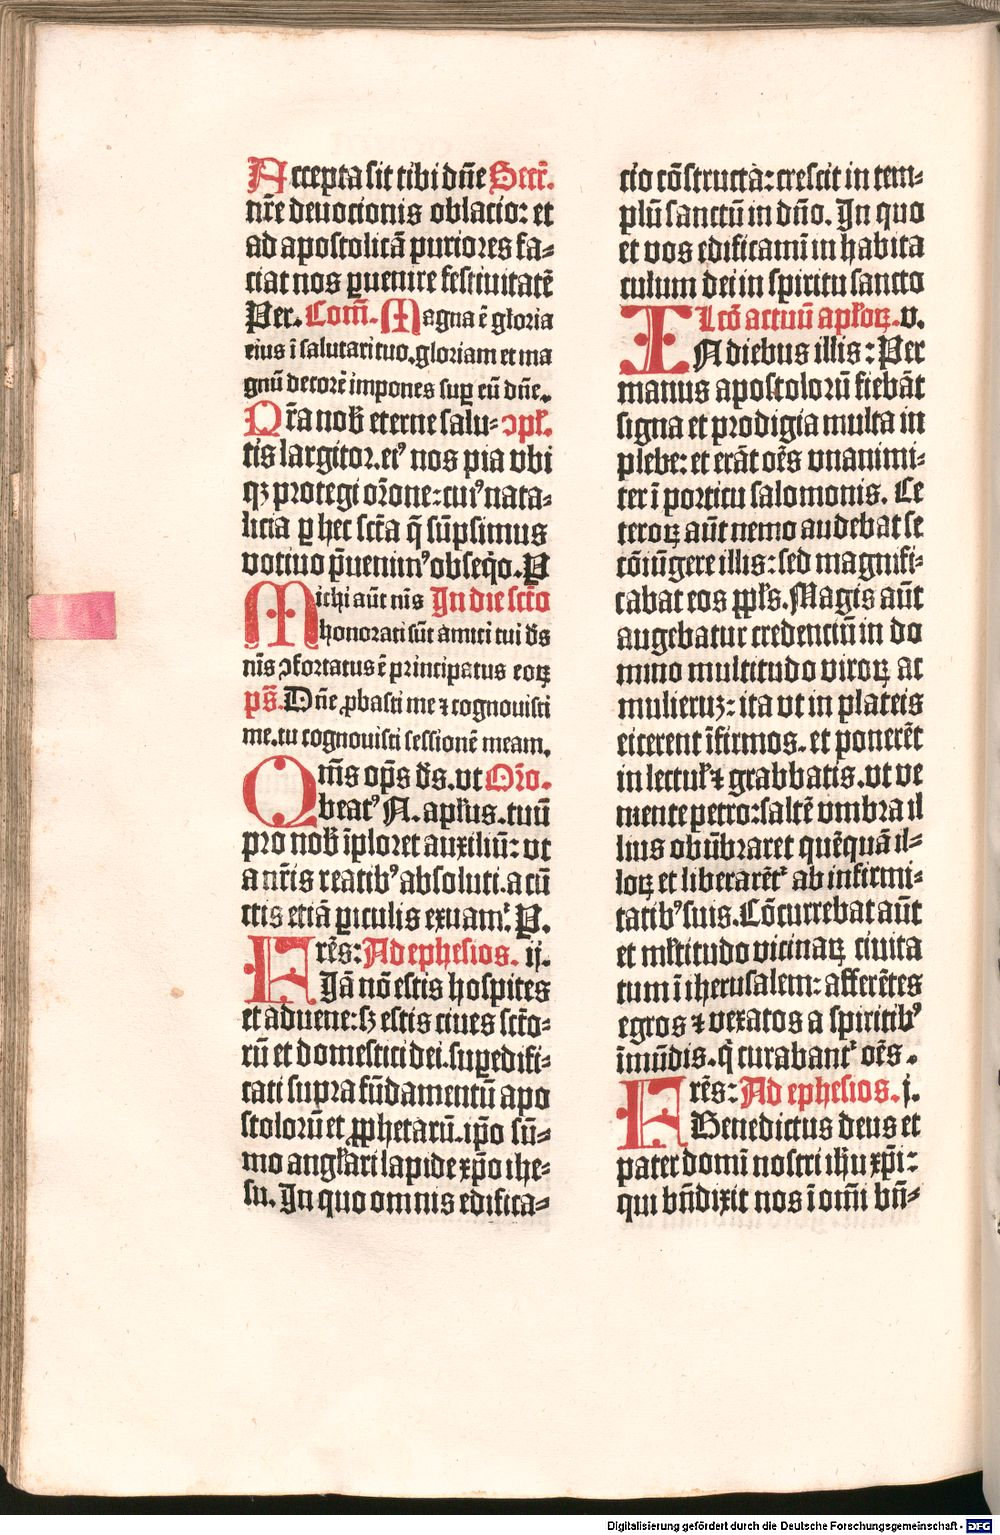 Accepta sit tibi dñe Secr̃.
nr̃e deuocionis oblacio: et
ad apostolicã puriores fa⸗
ciat nos ꝑuenire festiuitatẽ
Per. Com̃. Magna ẽ gloria
eius ĩ salutari tuo. gloriam et ma
gnũ decorẽ impones suꝑ eũ dñe.
Qr̃a nob̃ eterne salu⸗ ↄpl̃.
tis largitor. ei⁹ nos pia vbi
qꝫ protegi or̃one: cui⁹ nata⸗
licia ꝑ hec sct̃a q̃ sũpsimus
votiuo p̃uenim⁹ obseq̃o. P
Michi aũt nis̃ In die sct̃o
honorati sũt amici tui de̾s
nis̃ ↄfortatus ẽ principatus eoꝝ
ps̃. Dñe ꝓbasti me ⁊ cognouisti
me. tu cognouisti sessionẽ meam.
Qm̃s op̃s de̾s. vt Or̃o.
beat⁹ N. apl̃us. tuũ
pro nob̃ ĩploret auxiliũ: vt
a nr̃is reatib⁹ absoluti. a cũ
ctis etiã ꝑiculis exuam̃. P.
Fr̃es: Ad ephesios. ij.
Iã nõ estis hospites
et aduene: sꝫ estis ciues sct̃o⸗
rũ et domestici dei. suꝑedifi⸗
cati supra fũdamentũ apo
stolorũ et ꝓphetarũ. ip̃o sũ⸗
mo angl̃ari lapide xp̃o ihe⸗
su. In quo omnis edifica⸗
cio cõstructa: crescit in tem⸗
plũ sanctũ in dño. In quo
et vos edificamĩ in habita
culum dei in spiritu sancto
Lc̃o actuũ apl̃oꝝ. v.
IN diebus illis: Per
manus apostolorũ fiebãt
signa et prodigia multa in
plebe: et erãt oẽs vnanimi⸗
ter ĩ porticu salomonis. Ce
teroꝝ aũt nemo audebat se
cõiũgere illis: sed magnifi⸗
cabat eos ppl̃s. Magis aũt
augebatur credenciũ in do
mino multitudo viroꝝ ac
mulieruꝫ: ita vt in plateis
eicerent ĩfirmos. et ponerẽt
in lectul̃ ⁊ grabbatis. vt ve
niente petro: saltẽ vmbra il
lius obũbraret quẽquã il⸗
loꝝ et liberarẽt̃ ab infirmi⸗
tatib⁹ suis. Cõcurrebat aũt
et ml̃titudo vicinaꝝ ciuita
tum ĩ iherusalem: afferẽtes
egros ⁊ vexatos a spiritib⁹
ĩmũdis. q̃ curabant̃ oẽs.
Fr̃es: Ad ephesios. j.
Benedictus deus et
pater domĩ nostri ih̃u xp̃i:
qui bñdixit nos ĩ om̃i bñ⸗
Digitalisierung gefördert durch die Deutsche Forschungsgemeinschaft - DFG